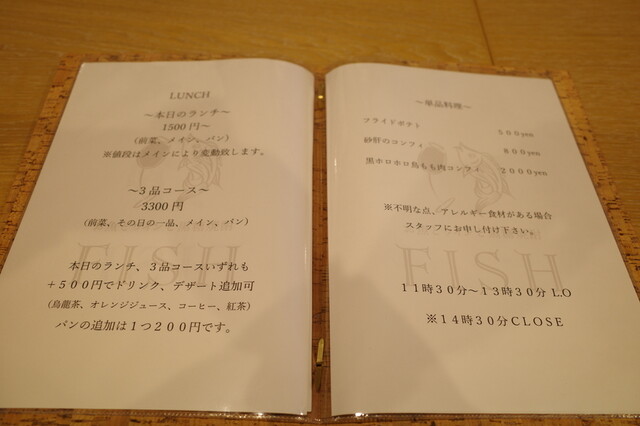 LUNCH
～本日のランチ～
1500円～
(前菜、メイン、パン)
※値段はメインにより変動致します。
～3品コース～
3300円
(前菜、その日の一品、メイン、パン)
FISH
本日のランチ、3品コースいずれも
+５００円でドリンク、デザート追加可
(烏龍茶、オレンジジュース、コーヒー、紅茶)
パンの追加は１つ２００円です。
～単品料理～
フライドポテト 500yen
砂肝のコンフィ 800yen
黒ホロホロ鳥もも肉コンフィ 2000yen
※不明な点、アレルギー食材がある場合
スタッフにお申し付け下さい。
FISH
１１時３０分～１３時３０分 L.O
※１４時３０分CLOSE